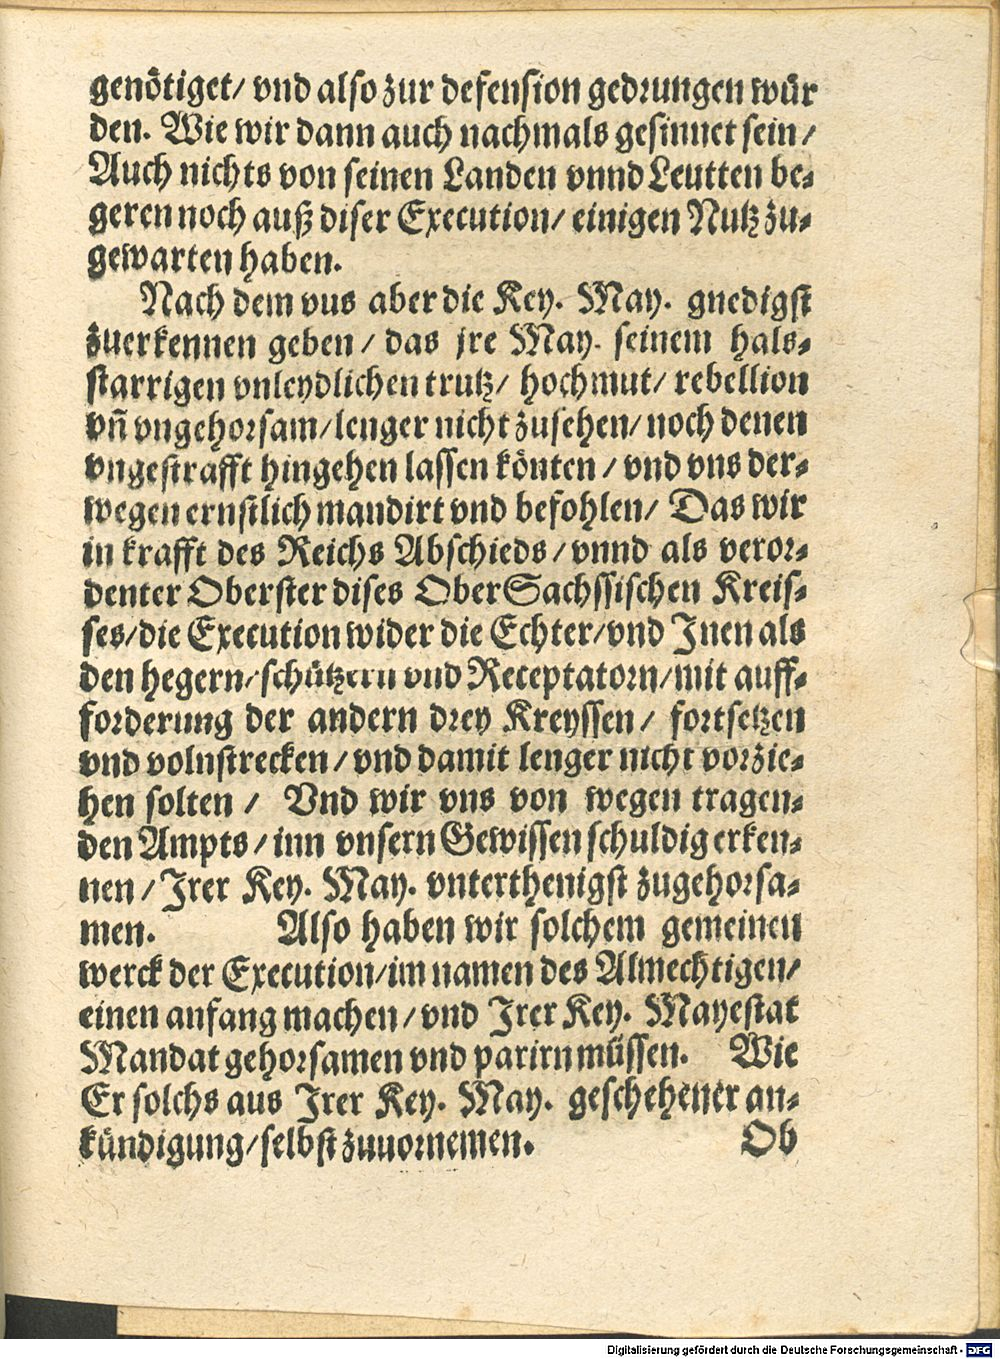 genötiget/ vnd also zur defension gedrungen wür
den. Wie wir dann auch nachmals gesinnet sein/
Auch nichts von seinen Landen vnnd Leutten be⸗
geren noch auß diser Execution/ einigen Nutz zu⸗
gewarten haben.
Nach dem vns aber die Key. May. gnedigst
zuerkennen geben/ das jre May. seinem hals⸗
starrigen vnleydlichen trutz/ hochmut/ rebellion
vñ vngehorsam/lenger nicht zusehen/ noch denen
vngestrafft hingehen lassen könten/ vnd vns der⸗
wegen ernstlich mandirt vnd befohlen/ Das wir
in krafft des Reichs Abschieds/ vnnd als veror⸗
denter Oberster dises OberSachssischen Kreis⸗
ses/die Execution wider die Echter/vnd Jnen als
den hegern/schützern vnd Receptatorn/mit auff⸗
forderung der andern drey Kreyssen/ fortsetzen
vnd volnstrecken/ vnd damit lenger nicht vorzie⸗
hen solten/ Vnd wir vns von wegen tragen⸗
den Ampts/ inn vnsern Gewissen schuldig erken⸗
nen/ Jrer Key. May. vnterthenigst zugehorsa⸗
men. Also haben wir solchem gemeinen
werck der Execution/im namen des Almechtigen/
einen anfang machen/ vnd Jrer Key. Mayestat
Mandat gehorsamen vnd parirn müssen. Wie
Er solchs aus Jrer Key. May. geschehener an⸗
kündigung/selbst zuuornemen. Ob
Digitalisierung gefördert durch die Deutsche Forschungsgemeinschaft - DFG